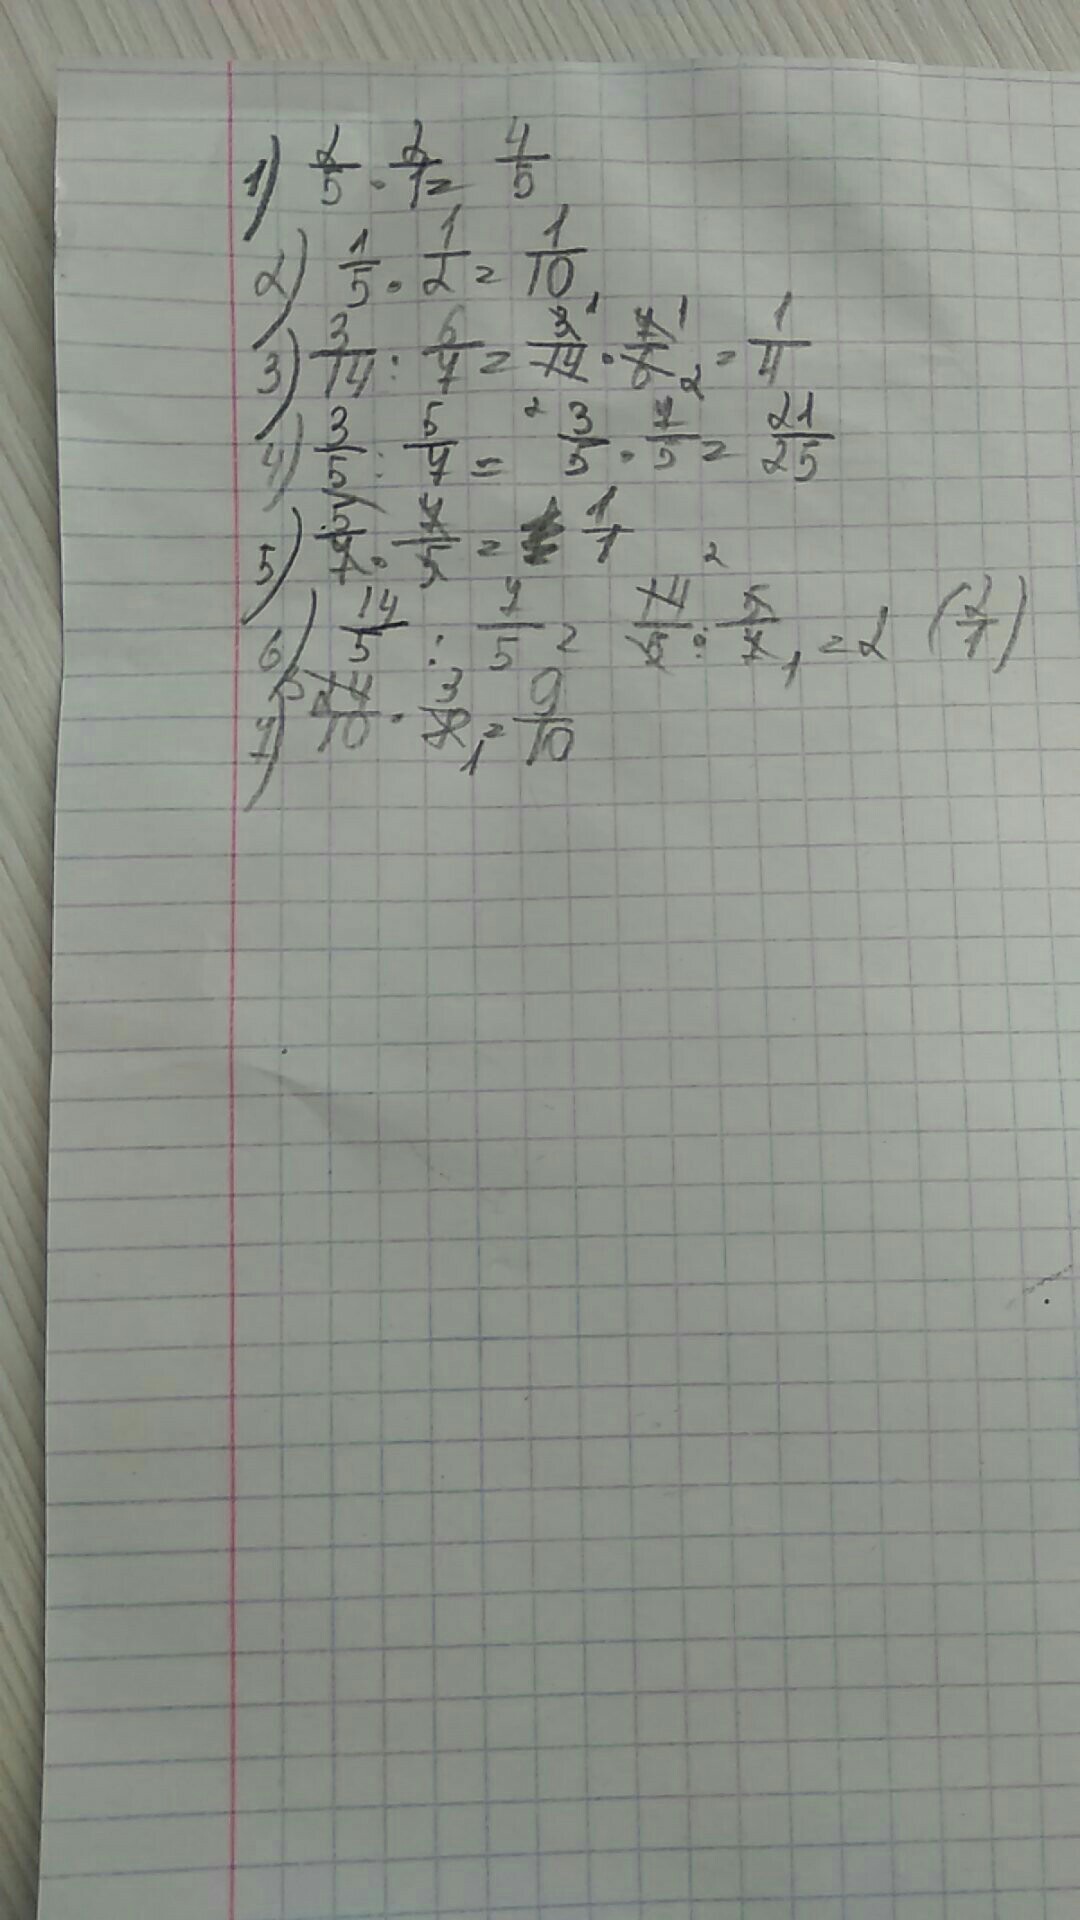 1) 2/5 · 2/1 = 4/5
2) 1/5 · 1/2 = 1/10
3) 3/14 : 6/7 = 3/14 ¹ · 7/6 ¹ ₂ = 1/4
4) 3/5 : 5/7 = ² 3/5 · 7/5 = 21/25
5) 5/7 · 7/5 = 1/1
6) 14/5 : 7/5 = 14/5 ² : 5/7 ₁ = 2 (2/1)
7) ³ /10 · 3/ ₁ = 9/10